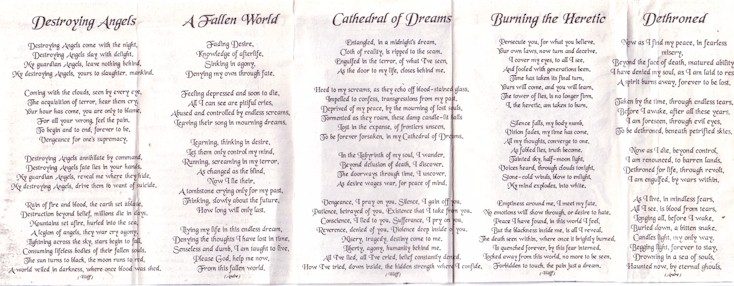 Destroying Angels
Destroying Angels come with the night,
Destroying Angels slay with delight,
My guardian Angels, leave nothing behind,
My destroying Angels, yours to slaughter, mankind.
Coming with the clouds, seen by every eye,
The acquisition of terror, hear them cry,
Your hour has come, you are only to blame,
For all your wrong, feel the pain,
To begin and to end, forever to be,
Vengeance for one's supremacy.
Destroying Angels annihilate by command,
Destroying Angels fate lies in your hands,
My guardian Angels, reveal me where they hide,
My destroying Angels, drive them to want of suicide.
Rain of fire and blood, the earth set ablaze,
Destruction beyond belief, millions die in days,
Mountains set afire, hurled into the sea,
A legion of angels, they war cry agony,
Lightning across the sky, stars begin to fall,
Consuming lifeless bodies of their fallen souls,
The sun turns to black, the moon runs to red,
A world veiled in darkness, where once blood was shed.
A Fallen World
Fading Desire,
Knowledge of afterlife,
Sinking in agony,
Denying my own through fate,
Feeling depressed and soon to die,
All I can see are pitiful cries,
Abused and controlled by endless screams,
Leaving their song in mourning dreams,
Learning, thinking in desire,
Let them only control my mind,
Running, screaming in my terror,
As changed as the blind,
Now I lie their,
A tombstone crying only for my past,
Thinking, slowly about the future,
How long will only last,
Living my life in this endless dream,
Denying the thoughts I have lost in time,
Senseless and dumb, I am taught to live,
Please God, help me now,
From this fallen world.
Cathedral of Dreams
Entangled, in a midnight's dream,
Cloth of reality, is ripped to the seam,
Engulfed in the terror, of what I've seen,
As the door to my life, closes behind me,
Heed to my screams, as they echo off blood-stained glass,
Impelled to confess, transgressions from my past,
Deprived of my peace, by the mourning of lost souls,
Tormented as they roam, these damp candle-lit halls
Lost in the expanse, of frontiers unseen,
To be forever forsaken, in my Cathedral of Dreams,
In the Labyrinth of my soul, I wander,
Beyond delusion of death, I discover,
The doorways through time, I uncover,
As desire wages war, for peace of mind,
Vengeance, I pray on you, Silence, I gain off you,
Patience, betrayed of you, Existence that I take from you,
Conscience, I lied to you, Sufferance, I pry on you,
Reverence, denied of you, Violence deep inside of you,
Misery, tragedy, destiny come to me,
Liberty, agony, humanity behind me,
All I've lied, all I've cried, belief constantly denied,
How I've tried, down inside, the hidden strength where I confide,
Burning the Heretic
Persecute you, for what you believe,
Your own laws, now turn and deceive,
I cover my eyes, to all I see,
And fooled with generations been,
Time has taken its final turn,
Yours will come, and you will learn,
The tower of lies, is no longer firm,
I the heretic, am taken to burn,
Silence falls, my body numb,
Vision fades, my time has come,
All my thoughts, converge to one,
As fabled lies, truth become,
Tainted sky, half-moon light,
Voices heard, through clouds tonight,
Stone-cold winds, blow to enlight,
My mind explodes, into white,
Emptiness around me, I meet my fate,
No emotions will show through, or desire to hate,
Peace I have found, in this world I feel,
But the blackness inside me, is all I reveal,
The death seen within, where once it brightly burned,
Is quenched forever, by this fear interned,
Locked away from this world, no more to be seen,
Forbidden to touch, the pain just a dream,
Dethroned
Now as I find my peace, in fearless
misery,
Beyond the face of death, matured ability
I have denied my soul, as I am laid to rest
A spirit burns away, forever to be lost,
Taken by the time, through endless tears,
Before I awake, after all these years,
I am foreseen, through evil eyes,
To be dethroned, beneath petrified skies,
Now as I die, beyond control,
I am renounced, to barren lands,
Dethroned for life, through revolt,
I am engulfed, by wars within,
As I live, in mindless fears,
All I see, is blood from tears,
Longing all, before I wake,
Buried down, a bitten snake,
Candles light, my only way,
Begging light, forever to stay,
Drowning in a sea of souls,
Haunted now, by eternal ghouls,